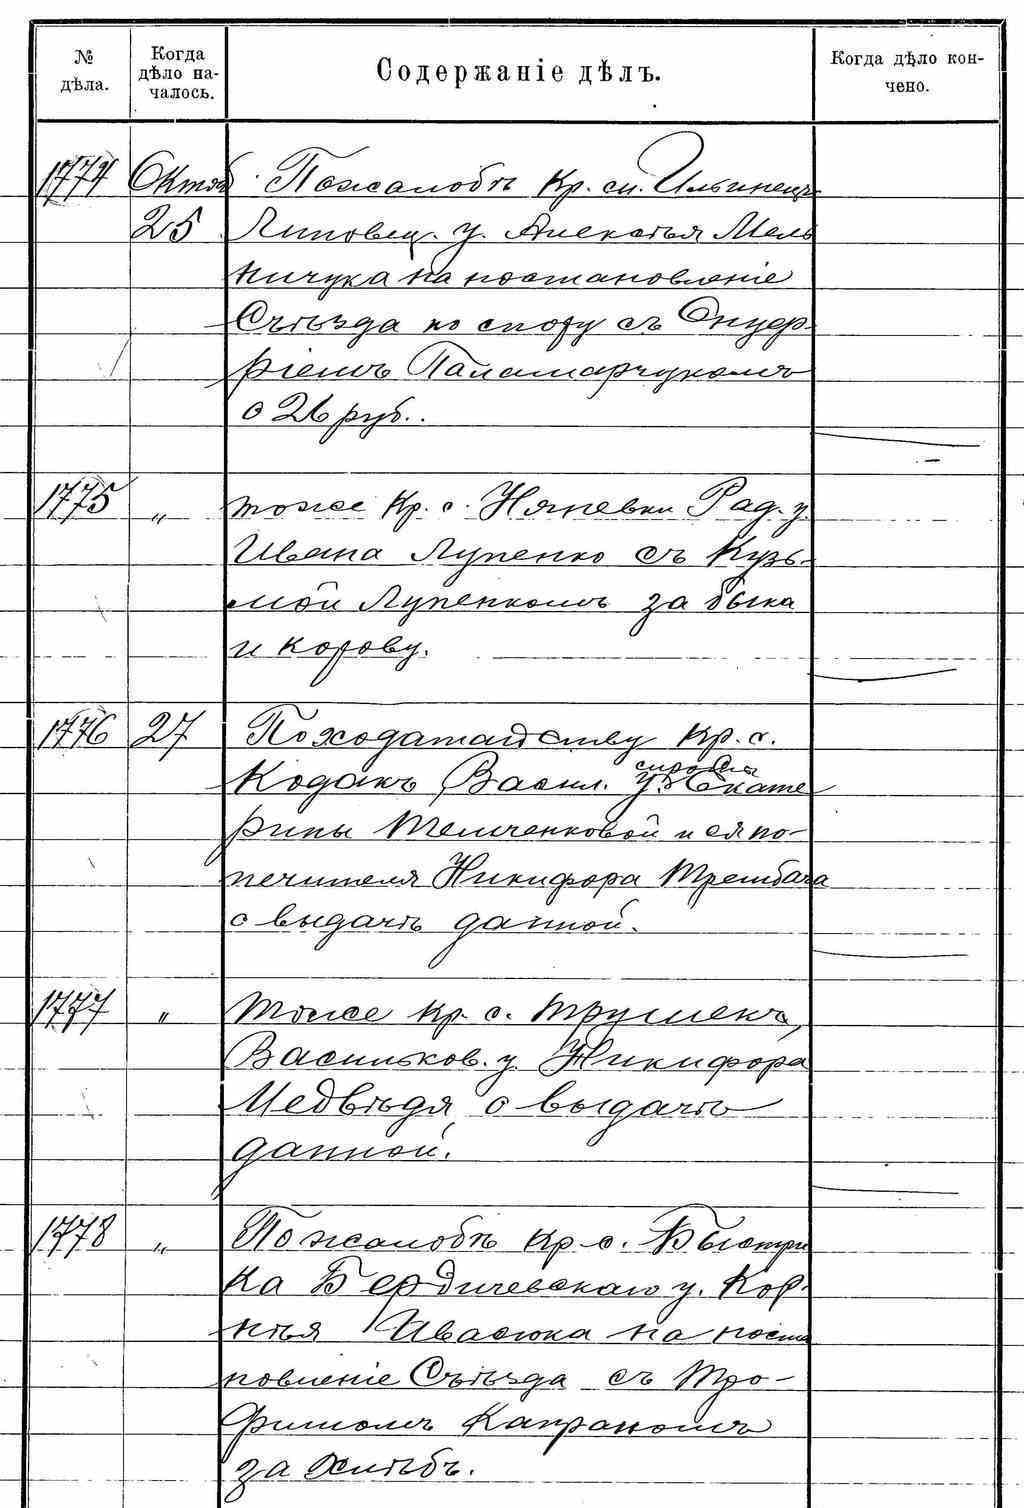 № дѣла.
Когда дѣло на-
чалось.
Содержаніе дѣлъ.
Когда дѣло кон-
чено.
1774 Октяб По жалобѣ кр. м. Ильинец
25 Липовец. у. Алексѣя Мель
ничука на постановленіе
Съѣзда по спору съ Онуф-
ріемъ Паламарчукомъ
о 26 руб..
1775 „ тоже кр. с. Рад. у.
Ивана Лупенко съ Кузь-
мой Лупенкомъ за быка
и корову.
1776 27 По ходатайству кр. с.
Кодакъ Васил. у. сироты Екате
рины Темченковой и ея по-
печителя Никифора Трембача
о выдачѣ данной.
1777 „ тоже кр. с. Трушекъ,
Васильков. у. Никифора
Медвѣдя о выдачѣ
данной.
1778 „ По жалобѣ кр. с. Быстри
ка Бердичевскаго у. Кор-
нѣя Ивасюка на поста
новленіе Съѣзда съ Тро-
фимомъ Капраномъ
за хлѣбъ.